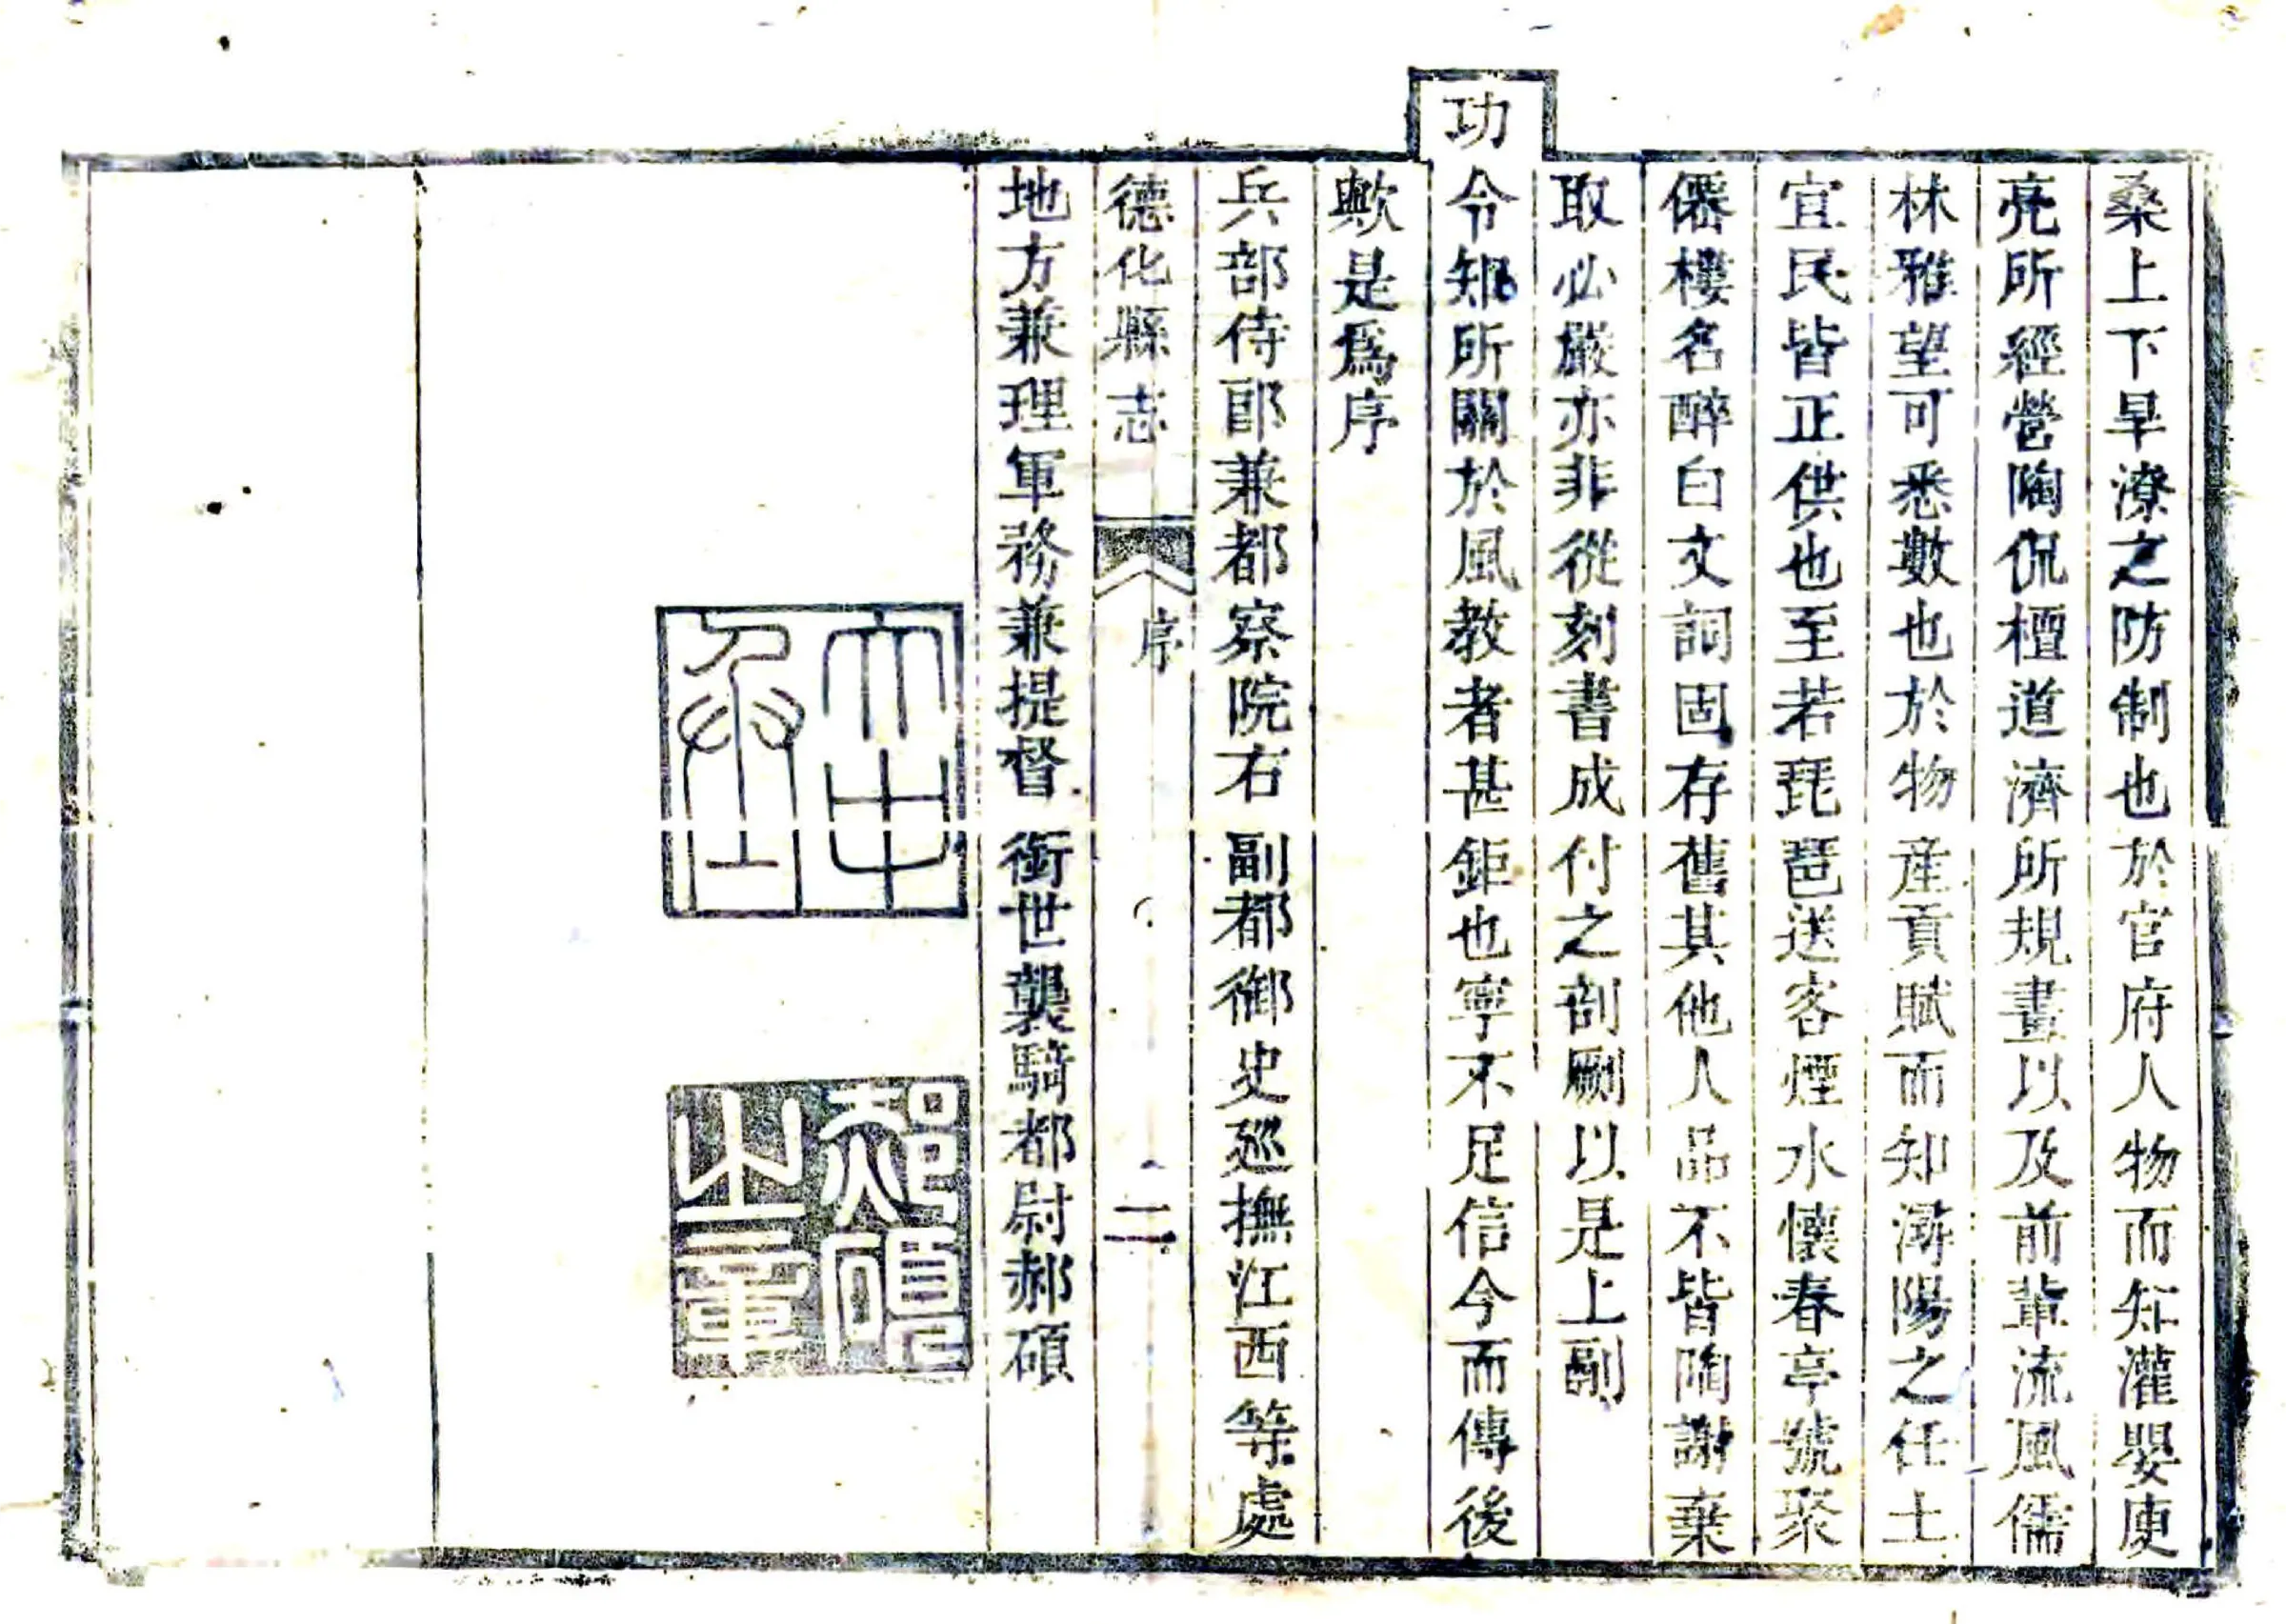 桑上下旱潦之防制也於官府人物而知灌嬰庾
亮所經營陶侃檀道濟所規畫以及前輩流風儒
林雅望可悉數也於物産貢賦而知潯陽之任土
宜民皆正供也至若琵琶送客煙水懷春亭號聚
僊樓名醉白文詞固存舊其他人品不皆陶謝棄
取必嚴亦非從刻書成付之剖劂以是上副
功令知所關於風教者甚鉅也寧不足信今而傳後
歟是爲序
兵部侍郎兼都察院右副都御史巡撫江西等處
德化縣志
序
二
地方兼理軍務兼提督銜世襲騎都尉郝碩
郝碩之章